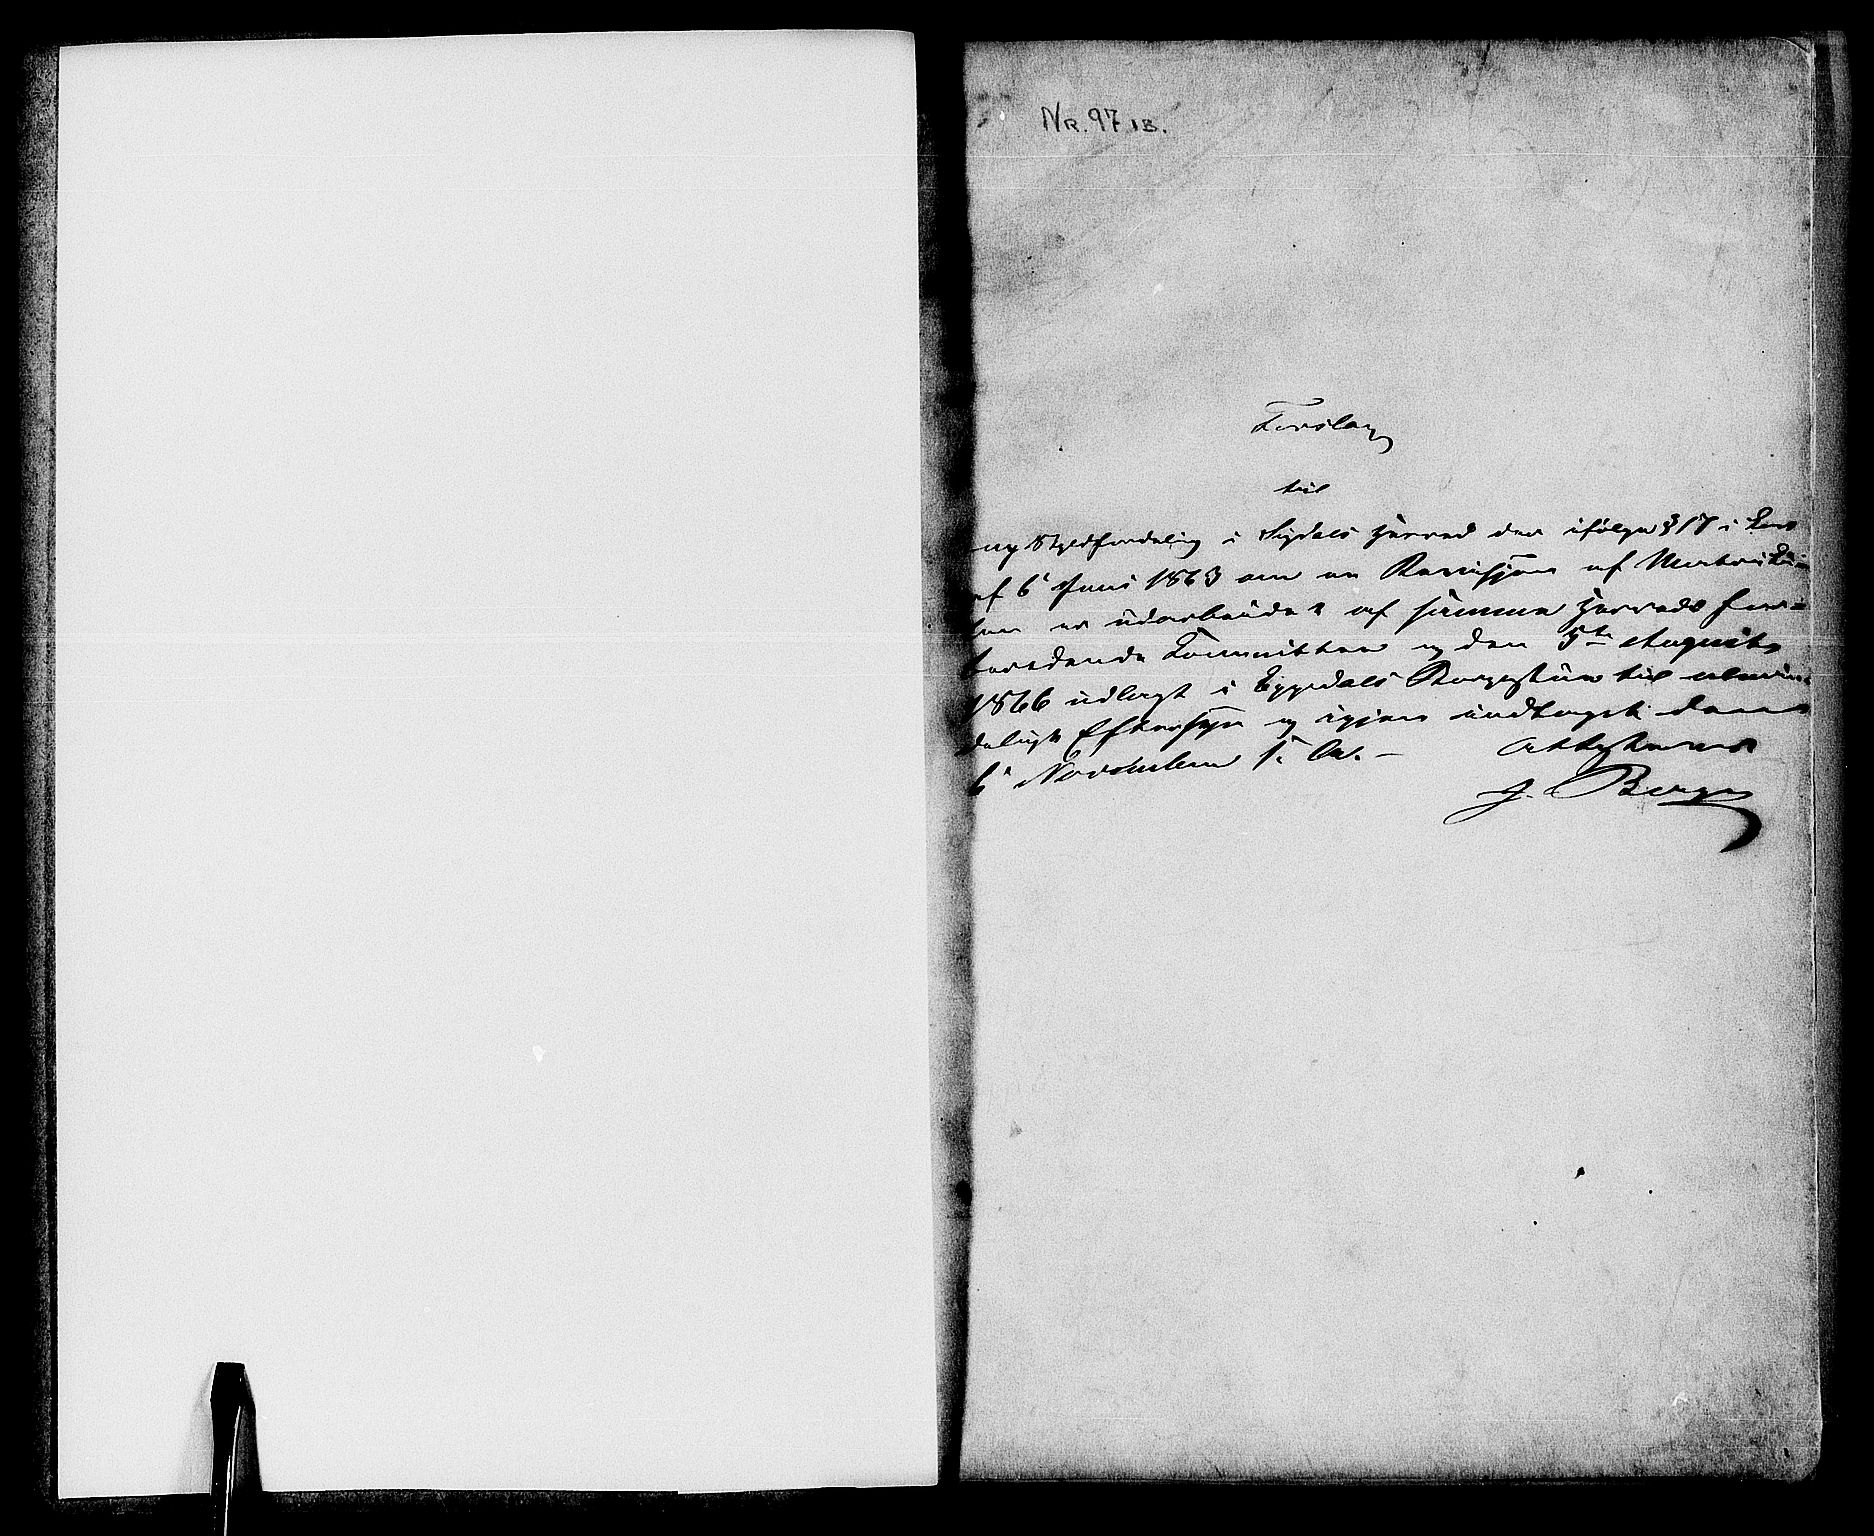 NR. 97 IB.
Forslag
til
ny Skyldfordeling i Sigdals Herred der ifølge § 17 i Lov
af 6 Juni 1863 om en Revisjon af Matrikü-
len er üdarbeidet af samme Herreds for-
beredende Committee og den 5te August
1866 udlagt i Eggedals Storgestue til almin-
deligt Eftersyn og igjen indtaget den
6 November s. A. — Attesteres
J. Berg